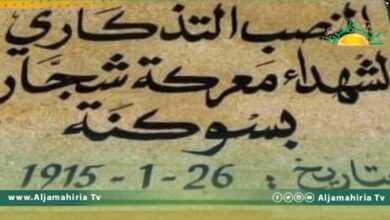 النصب التذكاري
لشهداء معركة شجار
بسوكنة
بتاريخ : 26-1-1915
www.Aljamahiria.Tv
Aljamahiria Tv